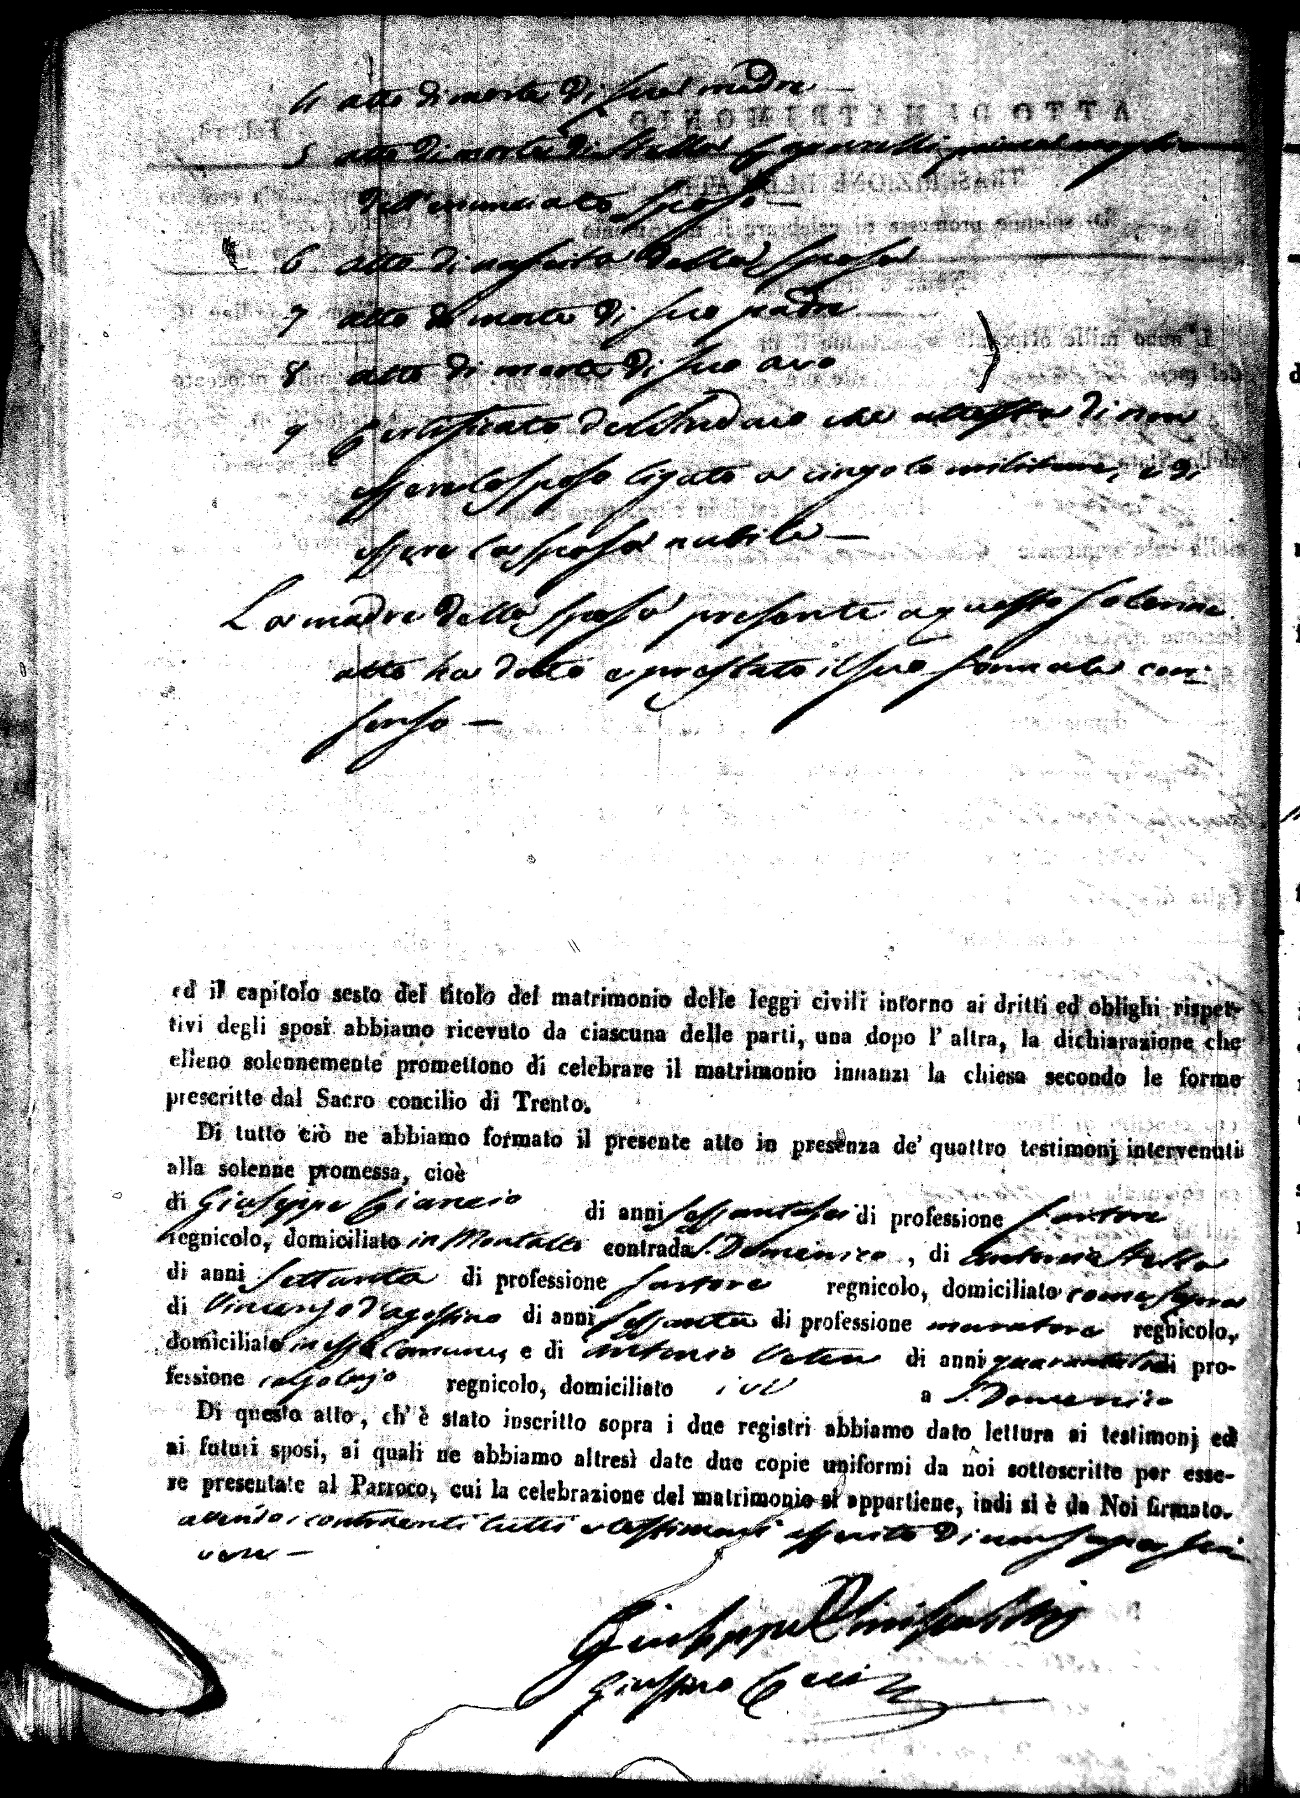 4 atto di morte di sua madre —
5 atto di morte di Stella prima moglie
dell'enunciato sposo —
6 atto di nascita della sposa
7 atto di morte di suo padre
8 atto di morte di suo avo
9 Certificato del Sindaco che attesta di non
essere lo sposo ligato a cingolo militare, e di
essere la sposa nubile —
La madre della sposa presente a questo solenne
atto ha dato e prestato il suo formale con-
senso —
ed il capitolo sesto del titolo del matrimonio delle leggi civili intorno ai dritti ed oblighi rispet-
tivi degli sposi abbiamo ricevuto da ciascuna delle parti, una dopo l'altra, la dichiarazione che
elleno solennemente promettono di celebrare il matrimonio innanzi la chiesa secondo le forme
prescritte dal Sacro concilio di Trento.
Di tutto ciò ne abbiamo formato il presente atto in presenza de' quattro testimonj intervenuti
alla solenne promessa, cioè
di Giuseppe Ciancio di anni sessantasei di professione sartore
regnicolo, domiciliato in Montalto contrada S. Domenico, di Antonio Stella
di anni settanta di professione sartore regnicolo, domiciliato come sopra
di Vincenzo d'agostino di anni sessanta di professione muratore regnicolo,
domiciliato in essa Comune, e di Antonio di anni di pro-
fessione calzolajo regnicolo, domiciliato ivi a S. Domenico
Di questo atto, ch'è stato inscritto sopra i due registri abbiamo dato lettura ai testimonj ed
ai futuri sposi, ai quali ne abbiamo altresì date due copie uniformi da noi sottoscritte per esse-
re presentate al Parroco, cui la celebrazione del matrimonio si appartiene, indi si è da Noi firmato.
avendo i contraenti tutti e testimoni asserito di non saper scri
vere —
Giuseppe